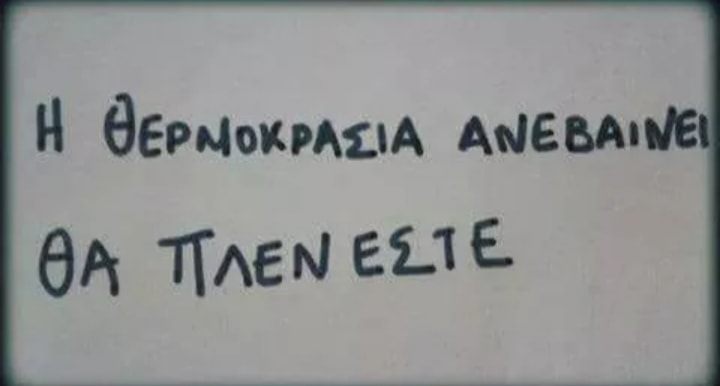 Η ΘΕΡΜΟΚΡΑΣΙΑ ΑΝΕΒΑΙΝΕΙ
ΘΑ ΠΛΕΝΕΣΤΕ